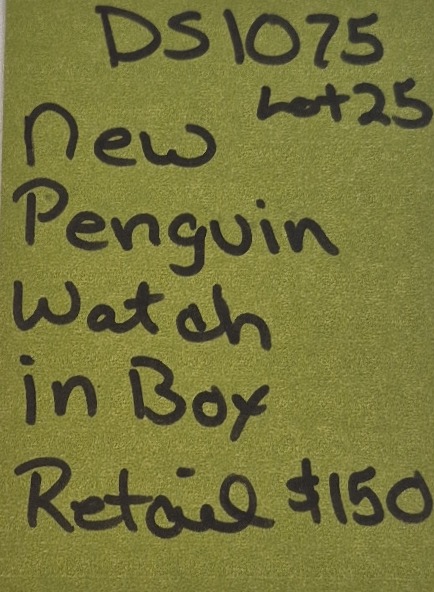 DS1075
Lot 25
New
Penguin
Watch
in Box
Retail $150